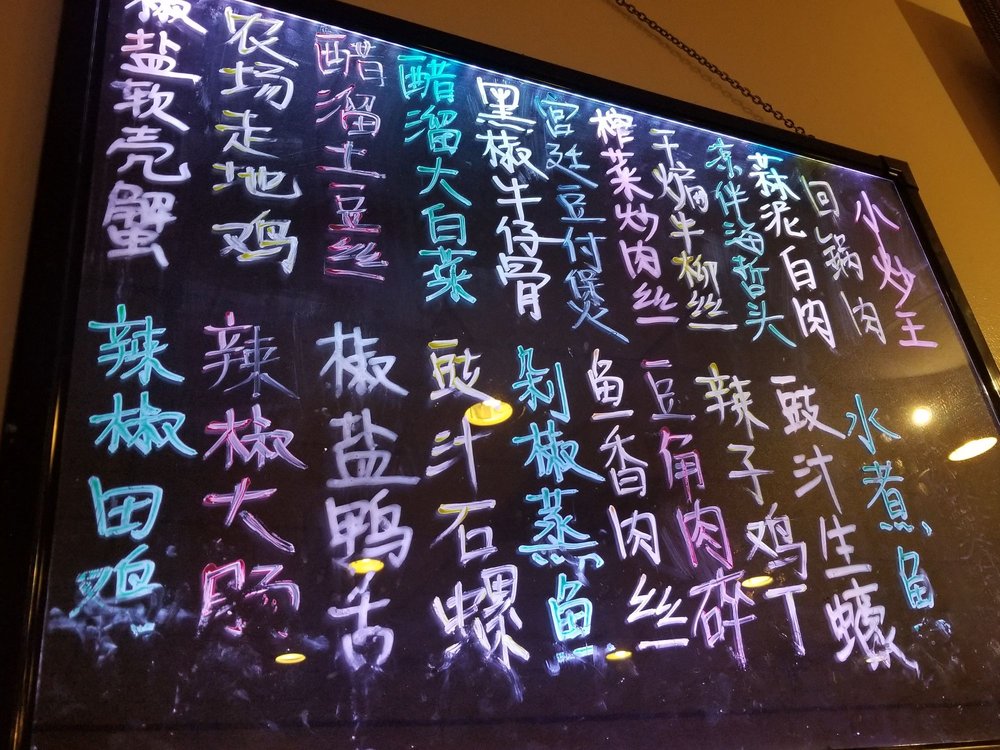 小炒王
回锅肉
蒜泥白肉
凉伴海哲头
干煸牛柳丝
榨菜炒肉丝
宫廷豆付煲
黑椒牛仔骨
醋溜大白菜
醋溜土豆丝
农场走地鸡
椒盐软壳蟹
水煮鱼
豉汁生蠔
辣子鸡丁
豆角肉碎
鱼香肉丝
剁椒蒸鱼
豉汁石螺
椒盐鸭舌
辣椒大肠
辣椒田鸡